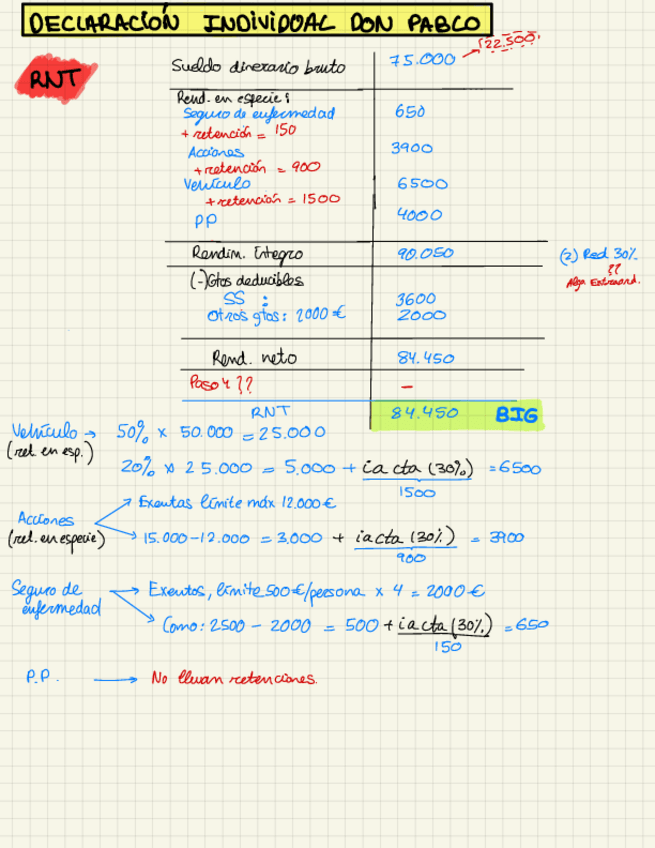 DECLARACIÓN INDIVIDUAL DON PABLO
RNT
Sueldo dinerario bruto 75.000 → 22.500
Rend. en especie:
Seguro de enfermedad 650
+ retención = 150
Acciones 3900
+ retención = 900
Vehículo 6500
+ retención = 1500
PP 4000
Rendim. Íntegro 90.050 (2) Red 30%
??
Algo Extraord.
(-) Gtos deducibles
SS : 3600
Otros gtos: 2000 € 2000
Rend. neto 84.450
Paso 4 ?? -
RNT 84.450 BIG
Vehículo → 50% x 50.000 = 25.000
(ret. en esp.)
20% x 25.000 = 5.000 + ia cta (30%) = 6500
1500
Acciones → Exentas límite máx 12.000 €
(ret. en especie) → 15.000 - 12.000 = 3.000 + ia cta (30%) = 3900
900
Seguro de → Exentos, límite 500 €/persona x 4 = 2000 €
enfermedad
→ Como: 2500 - 2000 = 500 + ia cta (30%) = 650
150
P.P. → No llevan retenciones.